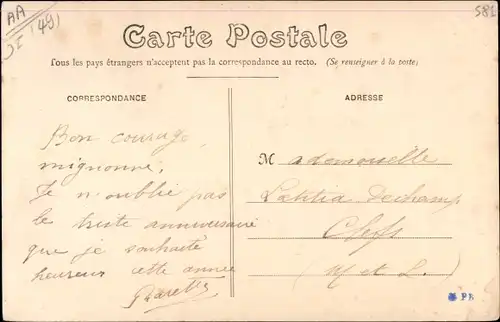 AA
I (49)
581
Carte Postale
Tous les pays étrangers n'acceptent pas la correspondance au recto. (Se renseigner à la poste)
CORRESPONDANCE
Bon courage
mignonne,
Je n'oublie pas
le triste anniversaire
que je souhaite
heureux cette année
ADRESSE
Mademoiselle
Laetitia Dechamp
Clefs
(M et L.)
PB